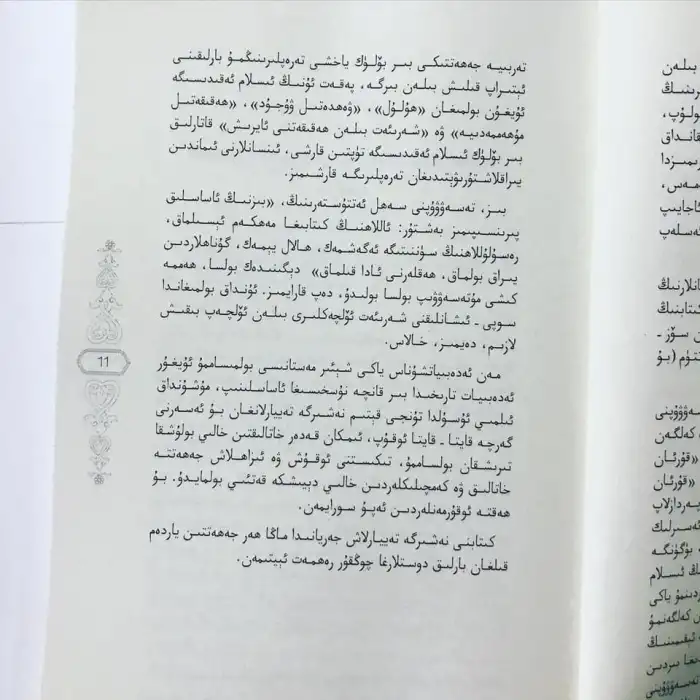 تەربىيە جەھەتتىكى بىر بۆلۈك ياخشى تەرەپلىرىنىڭمۇ بارلىقىنى
ئېتىراپ قىلىش بىلەن بىرگە، پەقەت ئۇنىڭ ئىسلام ئەقىدىسىگە
ئۇيغۇن بولمىغان «ھۇلۇل»، «ۋەھدەتىل ۋۇجۇد»، «ھەقىقەتىل
مۇھەممەدىيە» ۋە «شەرىئەت بىلەن ھەقىقەتنى ئايرىش» قاتارلىق
بىر بۆلۈك ئىسلام ئەقىدىسىگە تۈپتىن قارشى، ئىنسانلارنى ئىماندىن
يىراقلاشتۇرىۋېتىدىغان تەرەپلىرىگە قارشىمىز.
بىز، تەسەۋۋۇپنى سەھل ئەتتۇستەرىنىڭ، «بىزنىڭ ئاساسلىق
پىرىنسىپىمىز بەشتۇر: ئاللاھنىڭ كىتابىغا مەھكەم ئېسىلماق،
رەسۇلۇللاھنىڭ سۈننىتىگە ئەگەشمەك، ھالال يېمەك، گۇناھلاردىن
يىراق بولماق، ھەقلەرنى ئادا قىلماق» دېگىنىدەك بولسا، ھەممە
كىشى مۇتەسەۋۋىپ بولسا بولىدۇ، دەپ قارايمىز. ئۇنداق بولمىغاندا
سوپى - ئىشانلىقنى شەرىئەت ئۆلچەكلىرى بىلەن ئۆلچەپ بىقىش
لازىم، دەيمىز، خالاس.
مەن ئەدەبىياتشۇناس ياكى شېئىر مەستانىسى بولمىساممۇ ئۇيغۇر
ئەدەبىيات تارىخىدا بىر قانچە نۇسخىسىغا ئاساسلىنىپ، مۇشۇنداق
ئىلمىي ئۇسۇلدا تۇنجى قېتىم نەشىرگە تەييارلانغان بۇ ئەسەرنى
گەرچە قايتا - قايتا ئوقۇپ، ئىمكان قەدەر خاتالىقتىن خالىي بولۇشقا
تىرىشقان بولساممۇ، تىكىستنى ئوقۇش ۋە ئىزاھلاش جەھەتتە
خاتالىق ۋە كەمچىلىكلەردىن خالىي دېيىشكە قەتئىي بولمايدۇ. بۇ
ھەقتە ئوقۇرمەنلەردىن ئەپۇ سورايمەن.
كىتابنى نەشىرگە تەييارلاش جەريانىدا ماڭا ھەر جەھەتتىن ياردەم
قىلغان بارلىق دوستلارغا چوڭقۇر رەھمەت ئېيتىمەن.
11